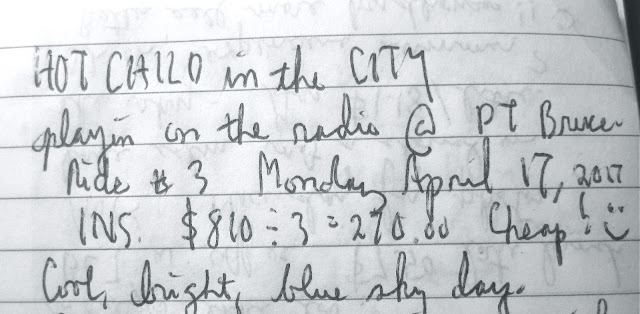 HOT CHILD in the CITY
playin on the radio @ PT Bruce
Ride # 3 Monday April 17, 2017
INS. $810 ÷ 3 = 270.00 Cheap! ü
Cool, bright, blue sky day.